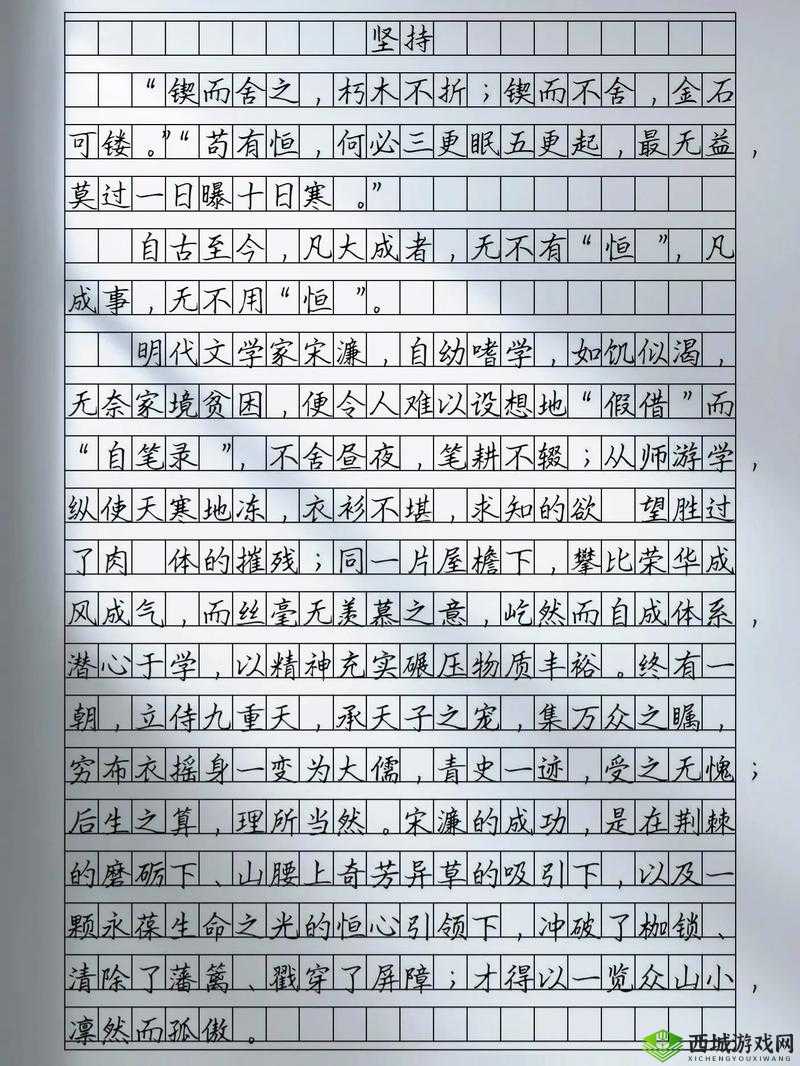 坚持
“锲而舍之，朽木不折；锲而不舍，金石
可镂。”“苟有恒，何必三更眠五更起，最无益，
莫过一日曝十日寒。”
自古至今，凡大成者，无不有“恒”，凡
成事，无不用“恒”。
明代文学家宋濂，自幼嗜学，如饥似渴，
无奈家境贫困，便令人难以设想地“假借”而
“自笔录”，不舍昼夜，笔耕不辍；从师游学，
纵使天寒地冻，衣衫不堪，求知的欲 望胜过
了肉 体的摧残；同一片屋檐下，攀比荣华成
风成气，而丝毫无羡慕之意，屹然而自成体系，
潜心于学，以精神充实碾压物质丰裕。终有一
朝，立侍九重天，承天子之宠，集万众之瞩，
穷布衣摇身一变为大儒，青史一迹，受之无愧；
后生之算，理所当然。宋濂的成功，是在荆棘
的磨砺下、山腰上奇芳异草的吸引下，以及一
颗永葆生命之光的恒心引领下，冲破了枷锁、
清除了藩篱、戳穿了屏障；才得以一览众山小，
凛然而孤傲。
西城游戏网
XICHENGYOUXIWANG